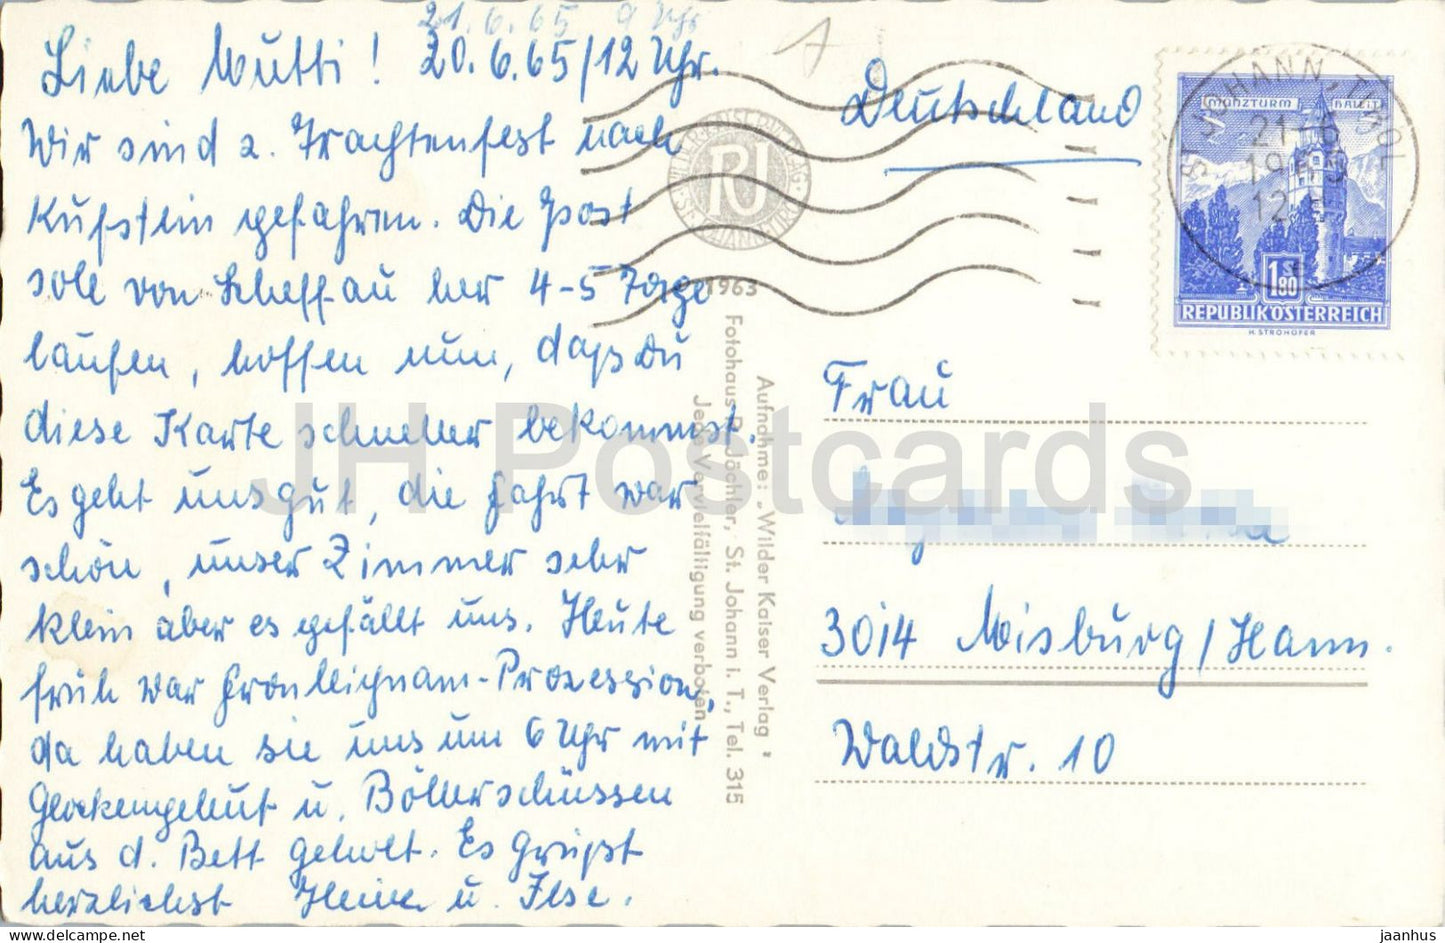 21.6.65 9 Uhr
Liebe Mutti! 20.6.65/12 Uhr.
Wir sind z. Trachtenfest nach
Kufstein gefahren. Die Post
soll von Scheffau her 4-5 Tage
laufen, hoffen nun, daß Du
diese Karte schneller bekommst.
Es geht uns gut, die Fahrt war
schön, unser Zimmer sehr
klein aber es gefällt uns. Heute
früh war Fronleichnam-Prozession,
da haben sie uns um 6 Uhr mit
Glockengeläut u. Böllerschüssen
aus d. Bett geholt. Es grüßt
herzlichst Heiner u. Ilse.
1963
Fotohaus R. Jöchler, St. Johann i. T., Tel. 315
Aufnahme: „Wilder Kaiser Verlag"
Jede Vervielfältigung verboten
RJ
Deutschland
ST. JOHANN, TIROL
21.-6
1965
12
MÜNZTURM HALL I.T.
1 S 80
REPUBLIK ÖSTERREICH
H. STROHOFER
Frau
3014 Misburg/Hann.
Waldstr. 10
JH Postcards
jaanhus